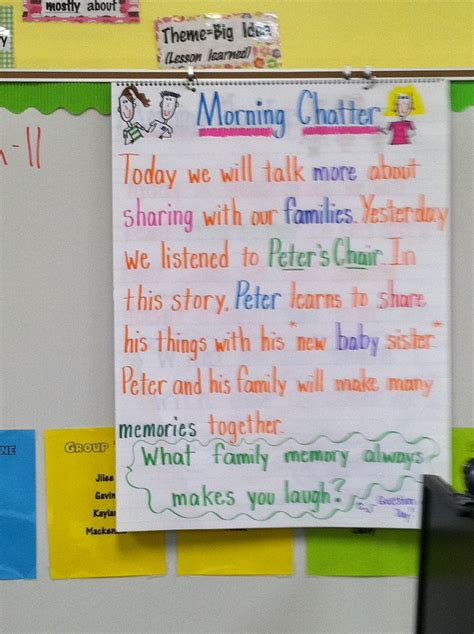 mostly about
Theme=Big Idea
(Lesson learned)
Morning Chatter
Today we will talk more about
sharing with our families. Yesterday
we listened to Peter's Chair. In
this story, Peter learns to share
his things with his "new baby sister"
Peter and his family will make many
memories together.
What family memory always
makes you laugh?
Question
Day
-11
NE
GROUP
Jilee
Gavin
Kayla
Macken